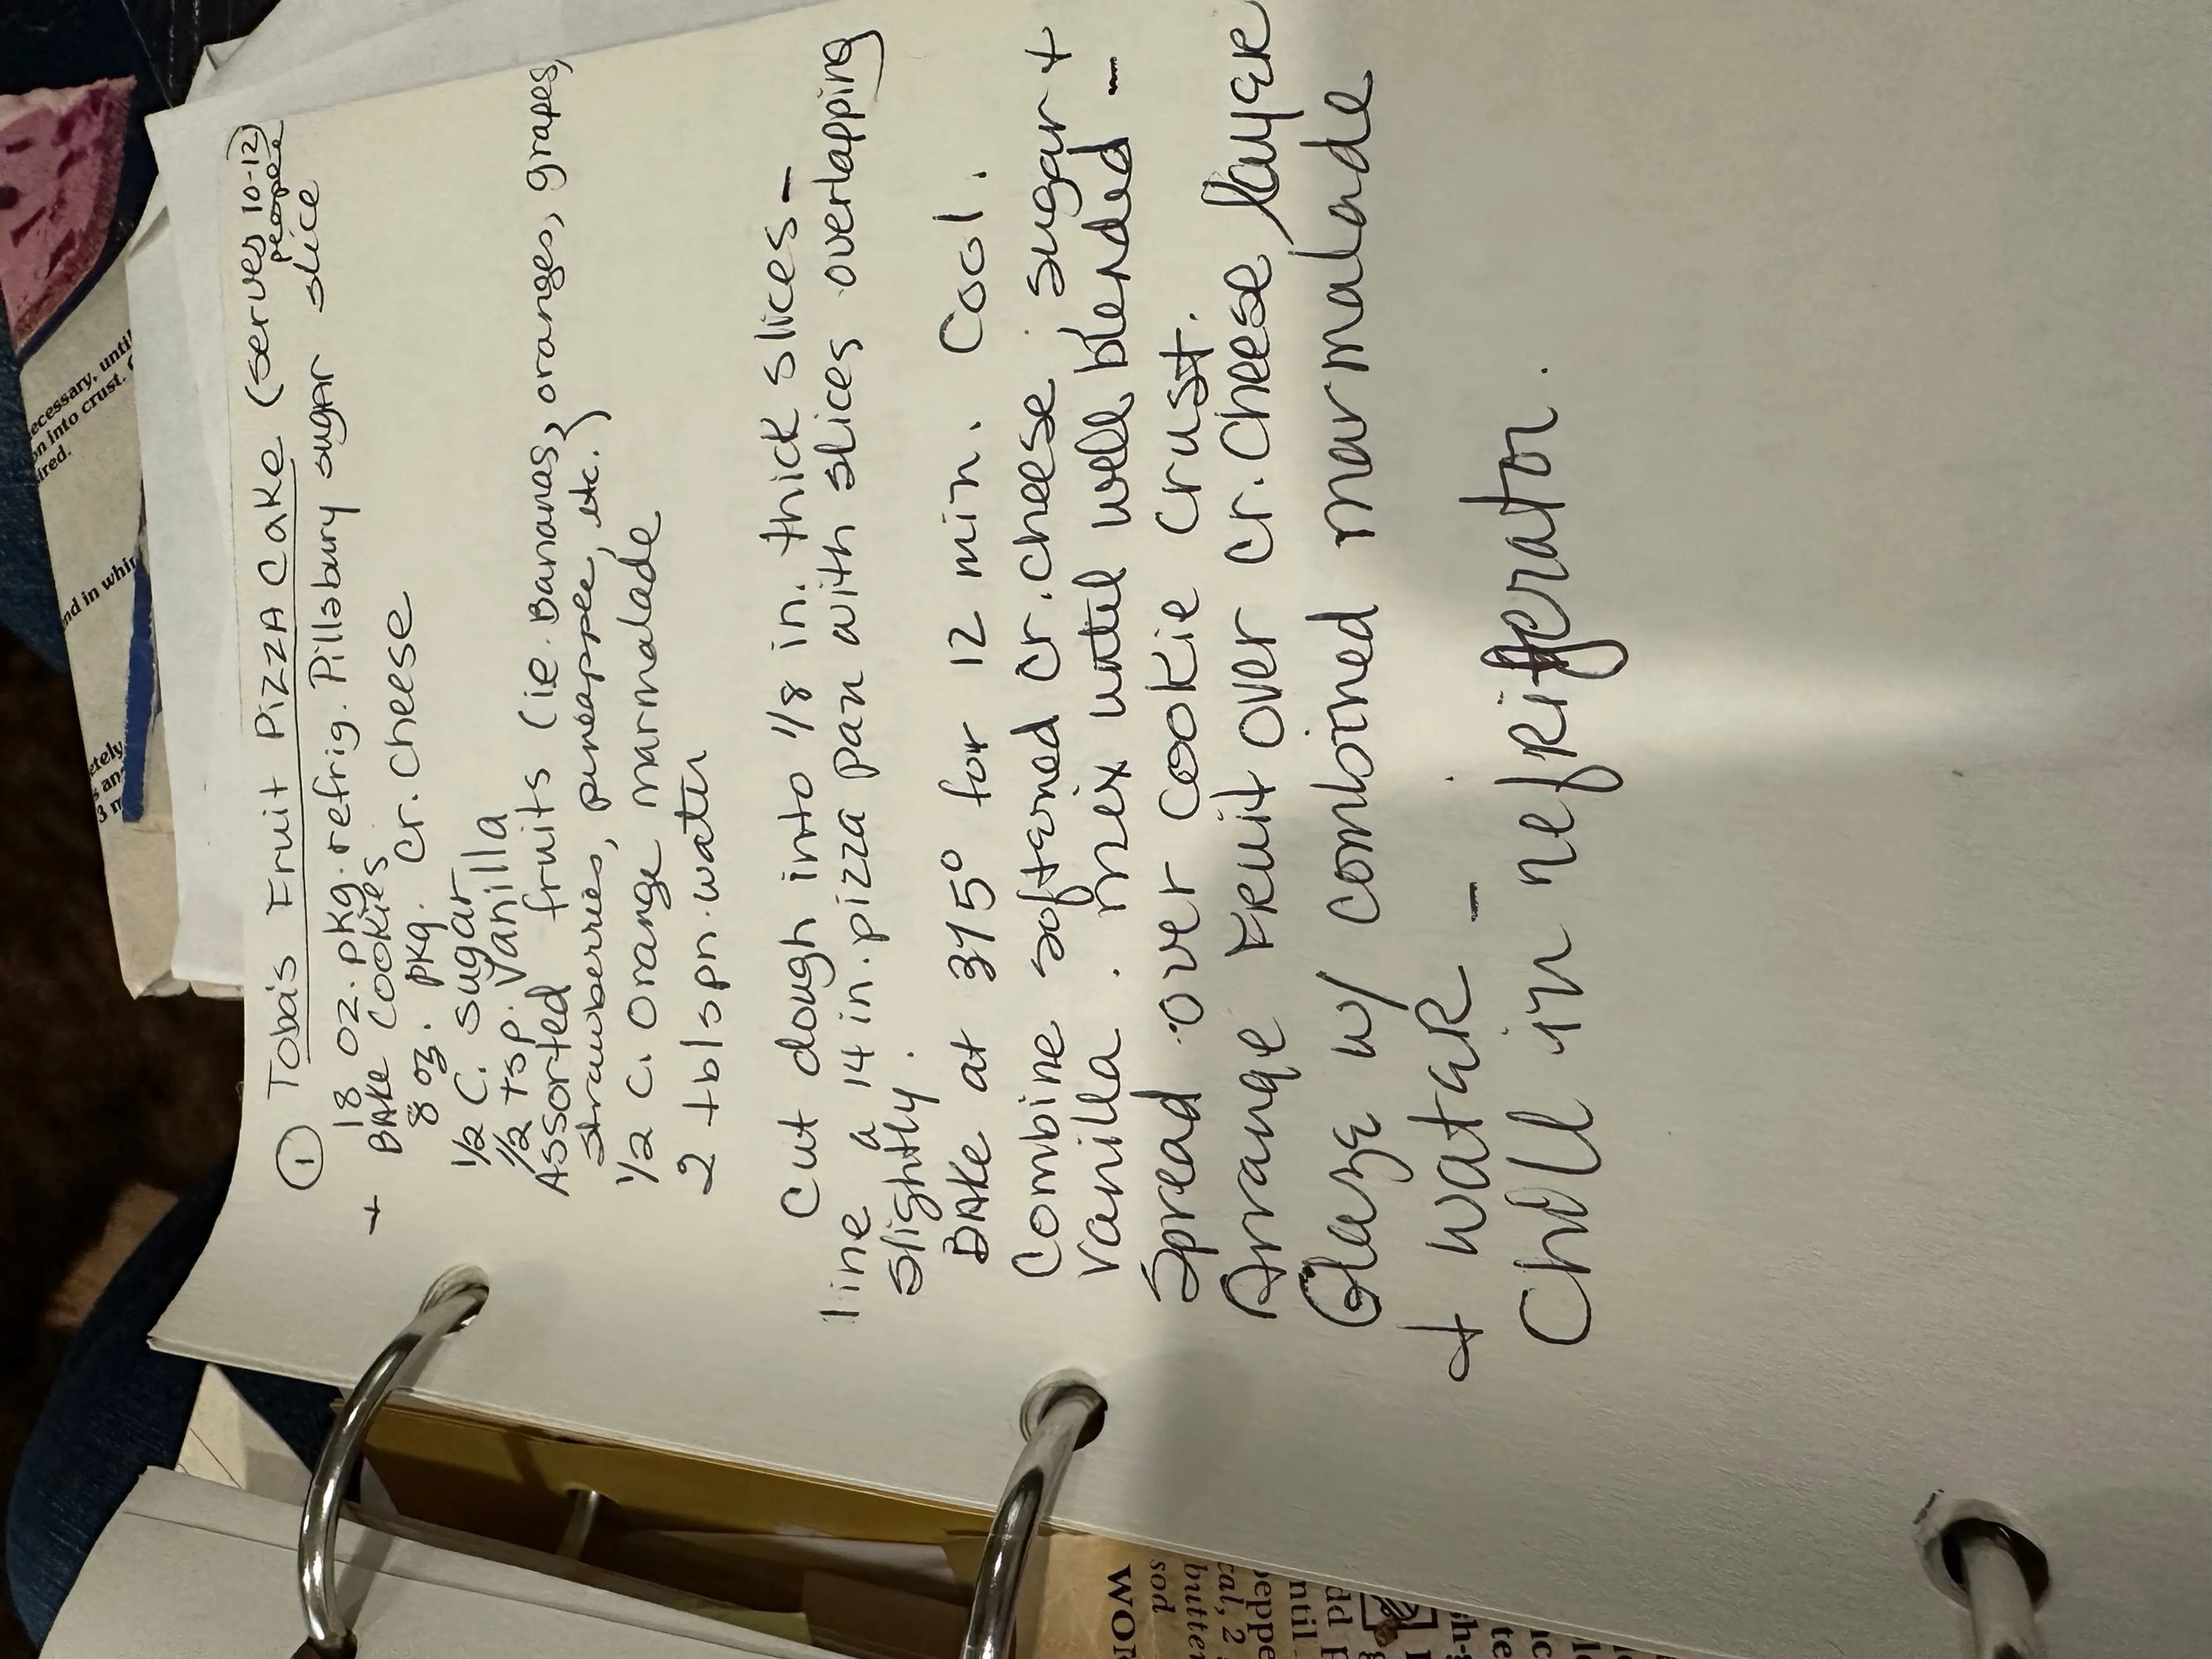 ① Toba's Fruit Pizza Cake (serves 10-12)
people
18 oz. pkg. refrig. Pillsbury sugar slice
+ Bake Cookies
8 oz. pkg. cr. cheese
1/2 C. sugar
1/2 tsp. Vanilla
Assorted fruits (ie. Bananas, oranges, grapes,
strawberries, pineapple, etc.)
1/2 c. orange marmalade
2 tblspn. water
Cut dough into 1/8 in. thick slices-
line a 14 in. pizza pan with slices overlapping
slightly.
BAKE at 375° for 12 min. Cool.
Combine softened cr. cheese sugar +
vanilla. mix until well blended -
Spread over cookie crust.
Arrange Fruit over cr. cheese layer
Glaze w/ combined marmalade
+ water -
Chill in refrigerator.
ecessary, until
on into crust.
ired.
nd in whip
etely
s an
3 m
WOR
sod
butter
cal, 2
peppe
ntil
dd p